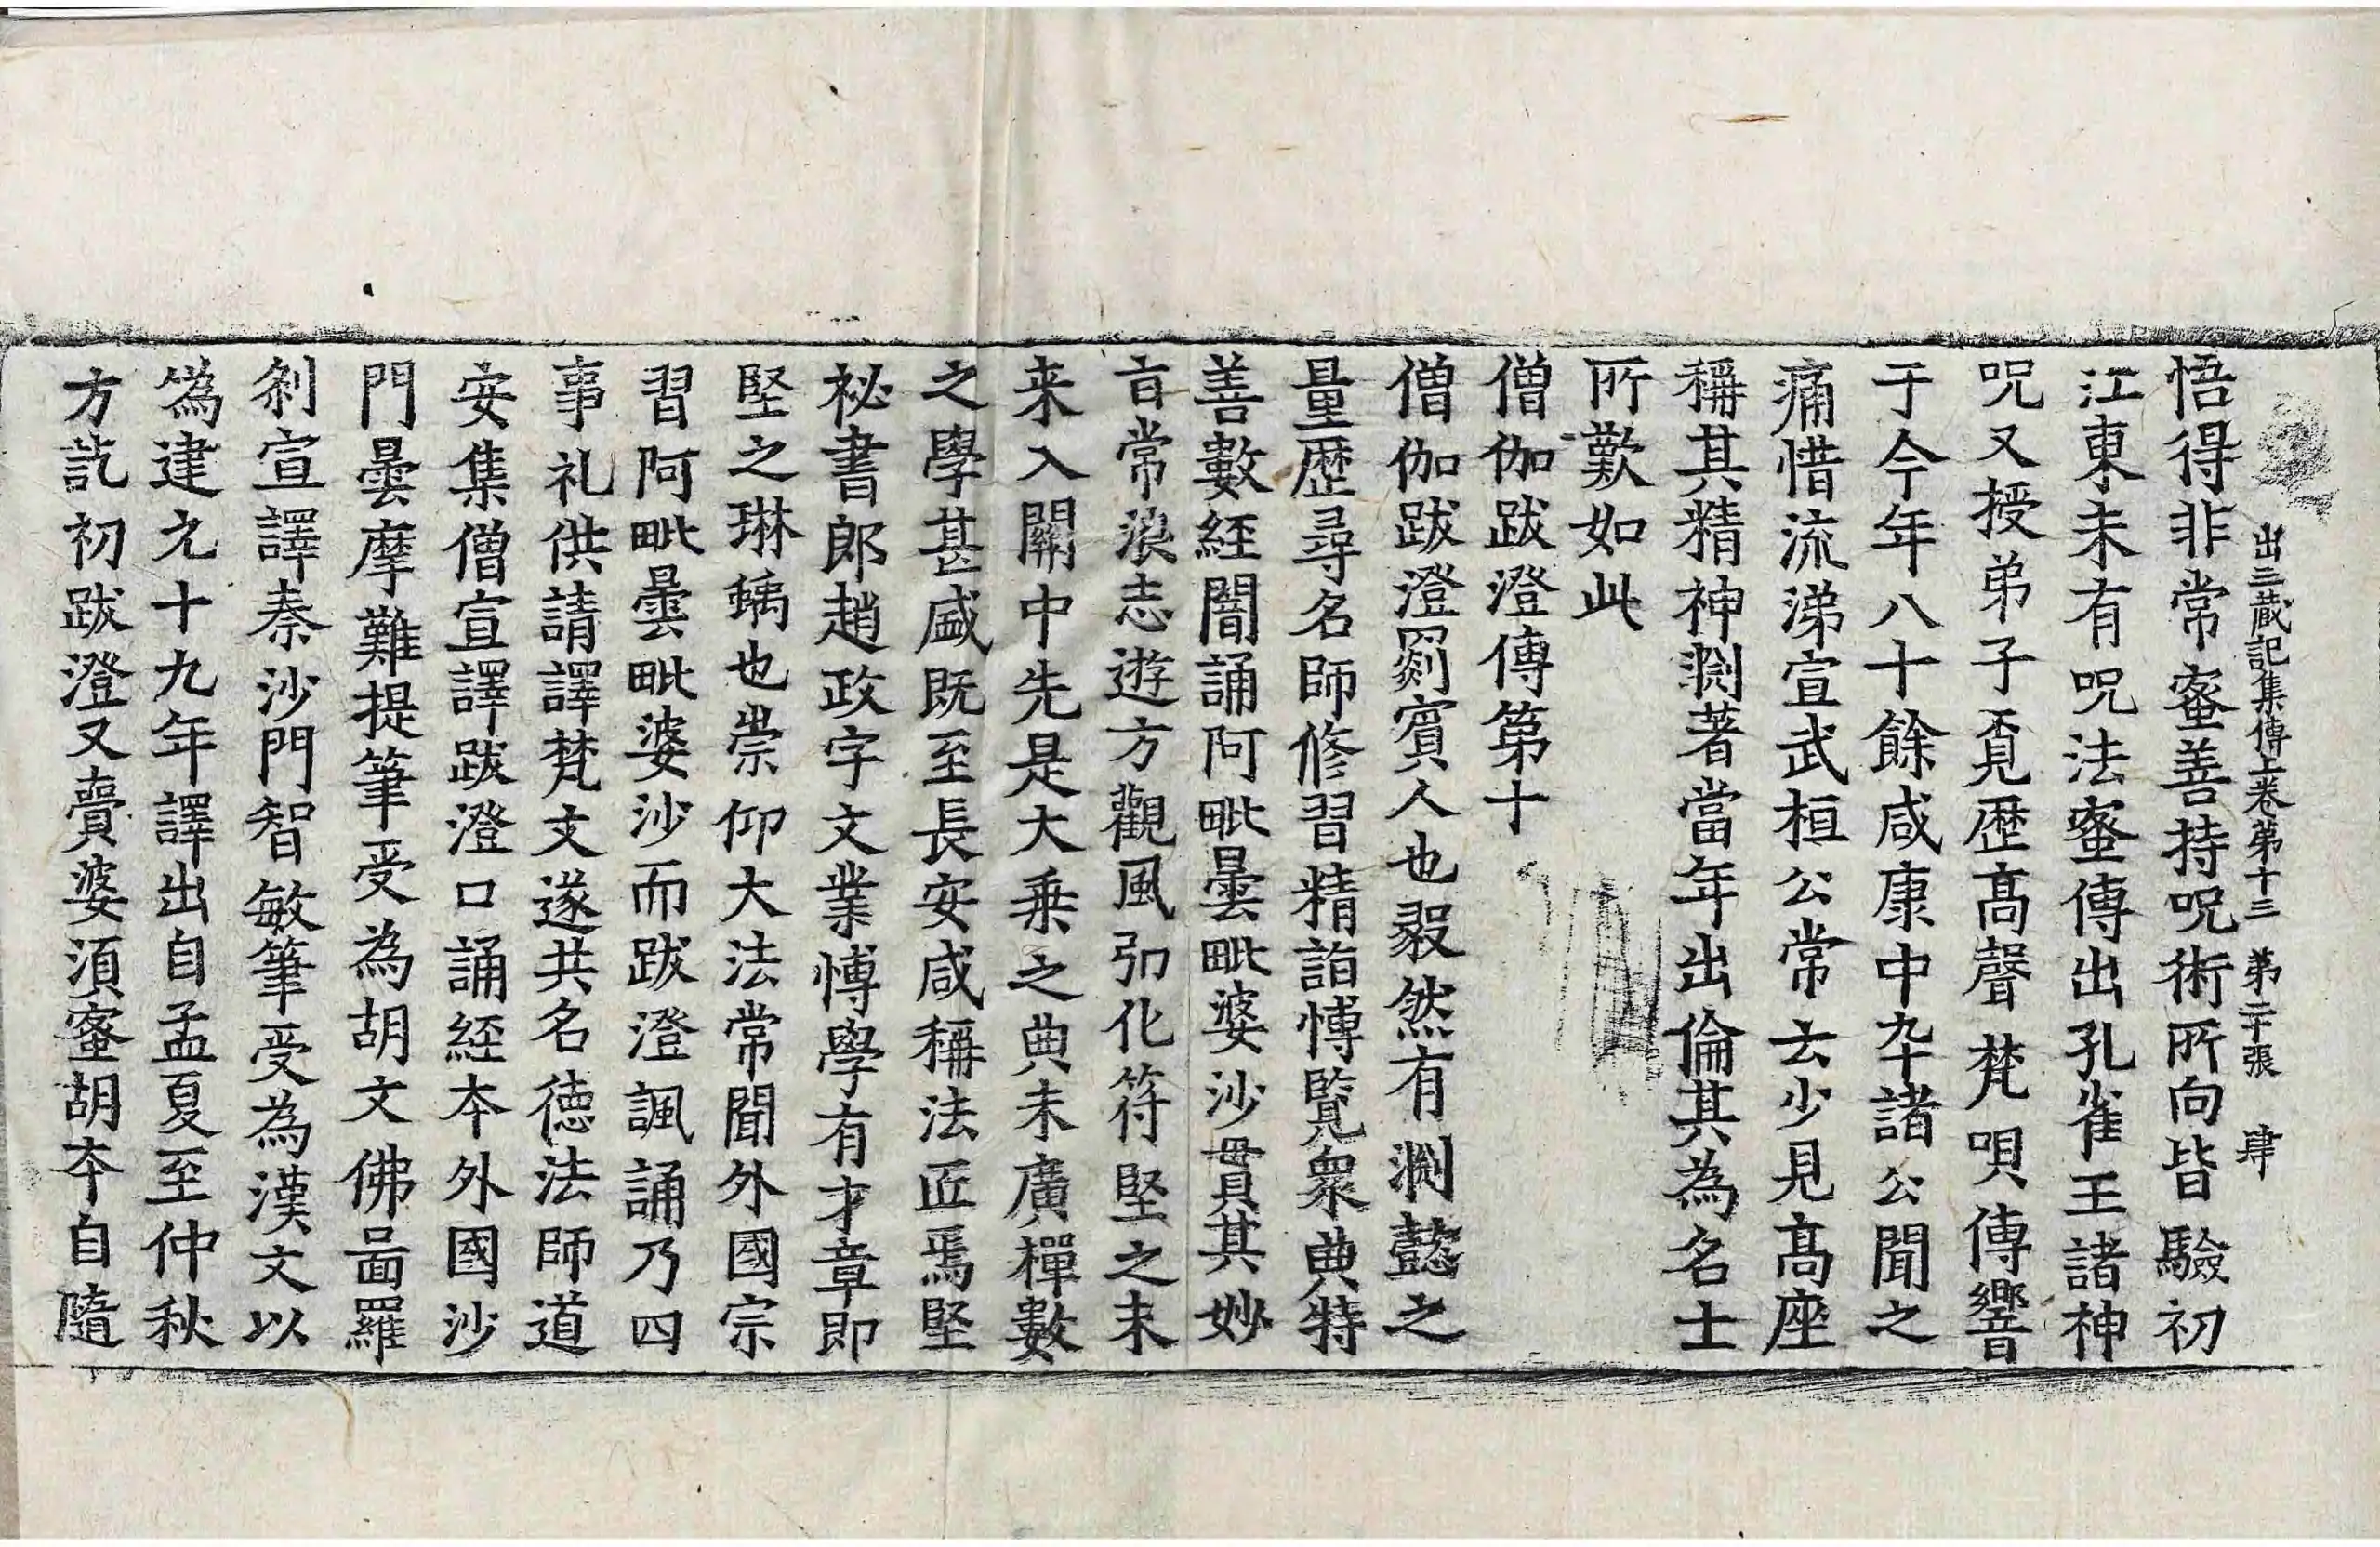 出三蔵記集傳上卷第十三　第二十張　肆
悟得非常蜜善持呪術所向皆驗初
江東未有呪法蜜傳出孔雀王諸神
呪又授弟子覓歷高聲梵唄傳響
于今年八十餘咸康中卒諸公聞之
痛惜流涕宣武桓公常云少見高座
稱其精神渕著當年出倫其為名士
所歎如此
僧伽跋澄傳第十
僧伽跋澄罽賓人也毅然有渕懿之
量歷尋名師修習精詣愽覧衆典特
善數經闇誦阿毗曇毗婆沙貫其妙
旨常浪志遊方觀風弘化符堅之末
来入關中先是大乗之典未廣禪數
之學甚盛既至長安咸稱法匠焉堅
祕書郎趙政字文業愽學有才章即
堅之琳瑀也崇仰大法常聞外國宗
習阿毗曇毗婆沙而跋澄諷誦乃四
事礼供請譯梵文遂共名德法師道
安集僧宣譯跋澄口誦経本外國沙
門曇摩難提筆受為胡文佛啚羅
剎宣譯秦沙門智敏筆受為漢文以
偽建元十九年譯出自孟夏至仲秋
方訖初跋澄又賷婆須蜜胡夲自隨